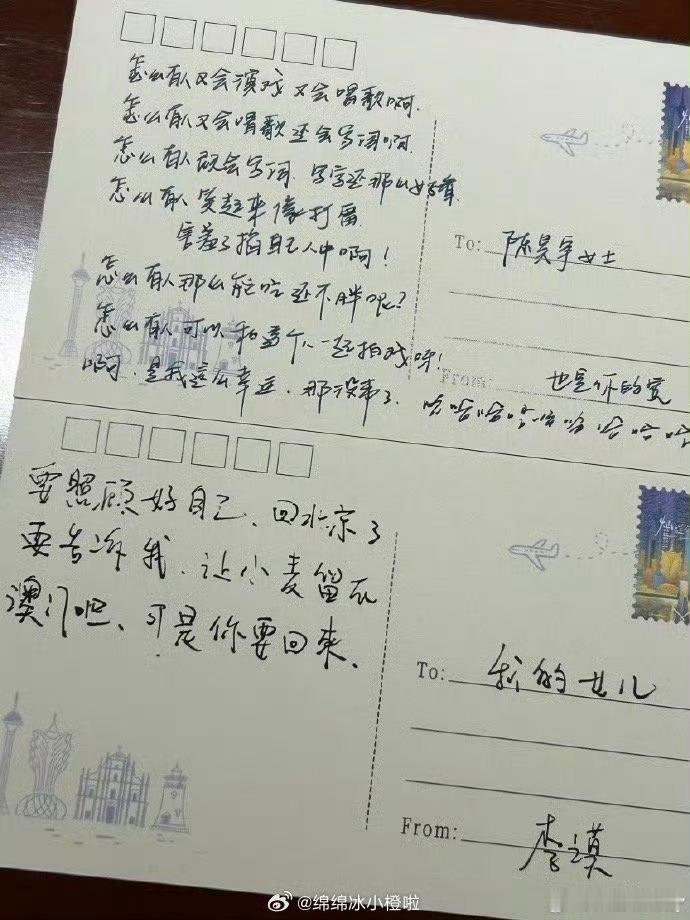 怎么有人又会演戏又会唱歌啊.
怎么有人又会唱歌还会写词啊.
怎么有人既会写词.写字还那么好看.
怎么有人笑起来像打雷
害羞了掐自己人中啊!
怎么有人那么能吃还不胖呢?
怎么有人可以和这个人一起拍戏呀!
啊.是我这么幸运.那没事了.哈哈哈哈哈哈哈哈哈
To: 陈昊宇女士
From: 也是你的宽
要照顾好自己、回北京了
要告诉我.让小麦留在
澳门吧、可是你要回来.
To: 我的女儿
From: 李漠
@绵绵冰小橙啦